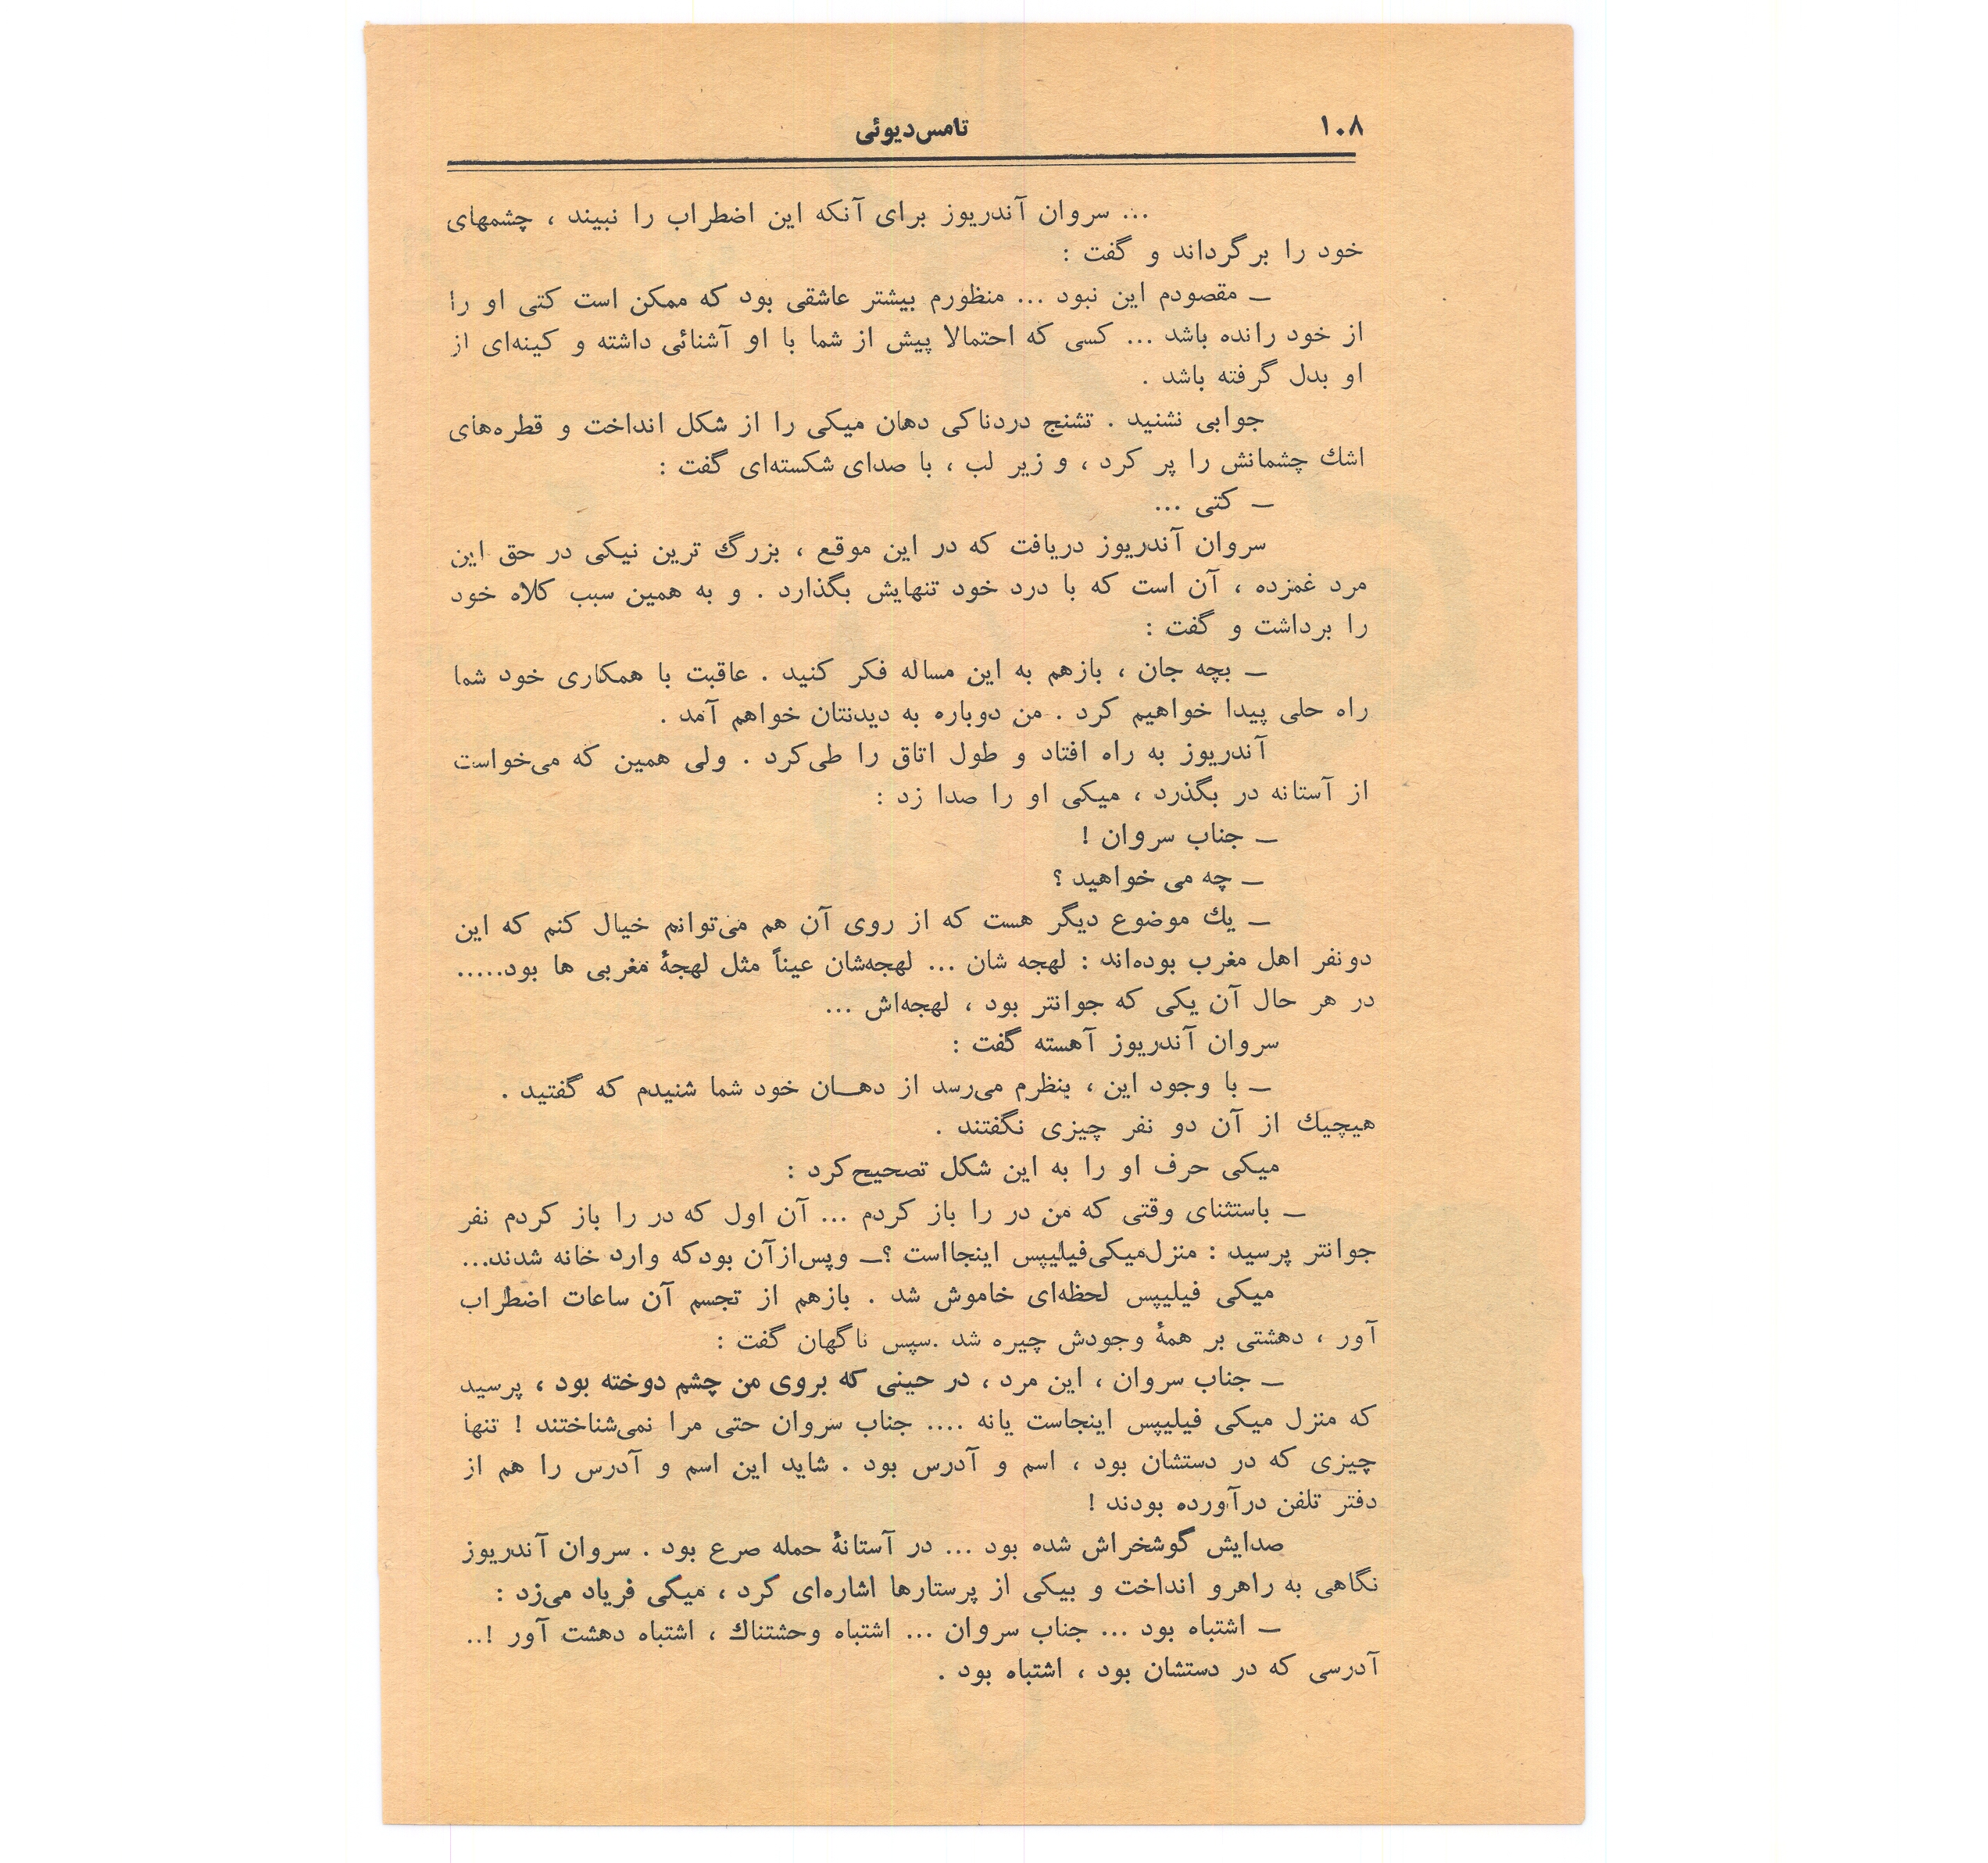 ۱۰۸
تامس‌دیوئی
... سروان آندریوز برای آنکه این اضطراب را نبیند ، چشمهای
خود را برگرداند و گفت :
ــ مقصودم این نبود ... منظورم بیشتر عاشقی بود که ممکن است کتی او را
از خود رانده باشد ... کسی که احتمالا پیش از شما با او آشنائی داشته و کینه‌ای از
او بدل گرفته باشد .
جوابی نشنید . تشنج دردناکی دهان میکی را از شکل انداخت و قطره‌های
اشك چشمانش را پر کرد ، و زیر لب ، با صدای شکسته‌ای گفت :
ــ کتی ...
سروان آندریوز دریافت که در این موقع ، بزرگ ترین نیکی در حق این
مرد غمزده ، آن است که با درد خود تنهایش بگذارد . و به همین سبب کلاه خود
را برداشت و گفت :
ــ بچه جان ، بازهم به این مساله فکر کنید . عاقبت با همکاری خود شما
راه حلی پیدا خواهیم کرد . من دوباره به دیدنتان خواهم آمد .
آندریوز به راه افتاد و طول اتاق را طی‌کرد . ولی همین که می‌خواست
از آستانه در بگذرد ، میکی او را صدا زد :
ــ جناب سروان !
ــ چه می خواهید ؟
ــ یك موضوع دیگر هست که از روی آن هم می‌توانم خیال کنم که این
دونفر اهل مغرب بوده‌اند : لهجه شان ... لهجه‌شان عیناً مثل لهجهٔ مغربی ها بود.....
در هر حال آن یکی که جوانتر بود ، لهجه‌اش ...
سروان آندریوز آهسته گفت :
ــ با وجود این ، بنظرم می‌رسد از دهــان خود شما شنیدم که گفتید .
هیچیك از آن دو نفر چیزی نگفتند .
میکی حرف او را به این شکل تصحیح‌کرد :
ــ باستثنای وقتی که من در را باز کردم ... آن اول که در را باز کردم نفر
جوانتر پرسید : منزل‌میکی‌فیلیپس اینجااست ؟ــ وپس‌ازآن بودکه وارد خانه شدند...
میکی فیلیپس لحظه‌ای خاموش شد . بازهم از تجسم آن ساعات اضطراب
آور ، دهشتی بر همهٔ وجودش چیره شد .سپس ناگهان گفت :
ــ جناب سروان ، این مرد ، در حینی که بروی من چشم دوخته بود ، پرسید
که منزل میکی فیلیپس اینجاست یانه .... جناب سروان حتی مرا نمی‌شناختند ! تنها
چیزی که در دستشان بود ، اسم و آدرس بود . شاید این اسم و آدرس را هم از
دفتر تلفن درآورده بودند !
صدایش گوشخراش شده بود ... در آستانهٔ حمله صرع بود . سروان آندریوز
نگاهی به راهرو انداخت و بیکی از پرستارها اشاره‌ای کرد ، میکی فریاد می‌زد :
ــ اشتباه بود ... جناب سروان ... اشتباه وحشتناك ، اشتباه دهشت آور !..
آدرسی که در دستشان بود ، اشتباه بود .